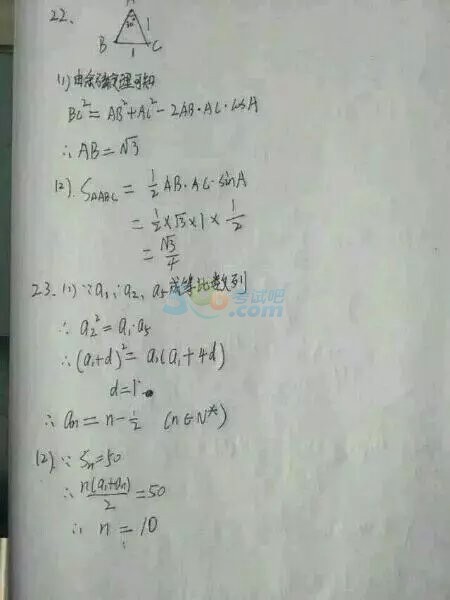 22.
A
30°
1
B
C
1
(1) 由余弦定理可知
BC²=AB²+AC²-2AB·AC·cosA
∴ AB=√3
(2). S△ABC = 1/2 AB·AC·sinA
= 1/2×√3×1×1/2
= √3/4
23. (1) ∵a₁, a₂, a₅成等比数列
考试吧
.com
∴ a₂²=a₁·a₅
∴(a₁+d)²=a₁(a₁+4d)
d=1
∴ an=n-1/2 (n∈N*)
(2). ∵ Sn=50
∴ n(a₁+an)/2=50
∴ n=10